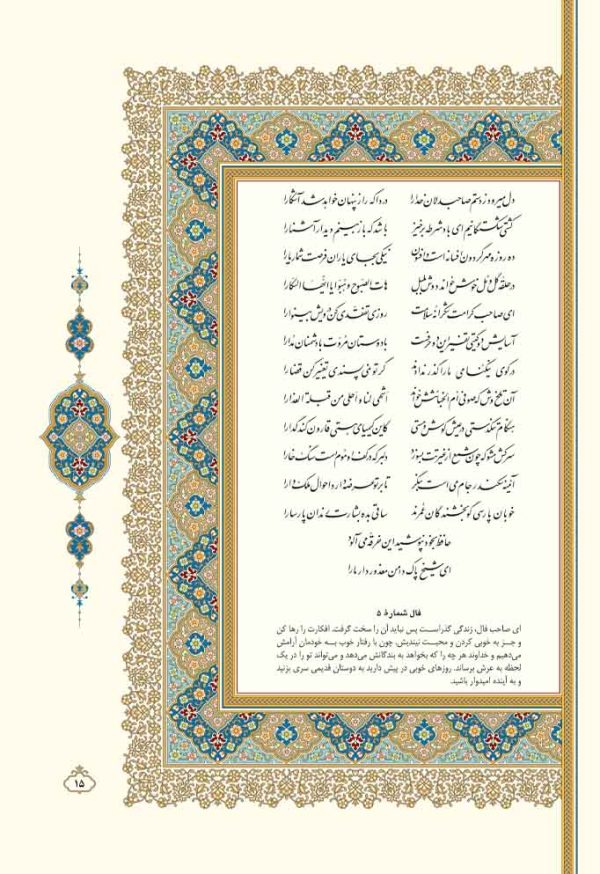 دل میرود ز دستم صاحبدلان خدا را دردا که راز پنهان خواهد شد آشکارا
کشتی شکستگانیم ای باد شرطه برخیز باشد که باز بینیم دیدار آشنا را
ده روزه مهر گردون افسانه است و افسون نیکی بجای یاران فرصت شمار یارا
در حلقه گل و مل خوش خواند دوش بلبل هات الصبوح هبوا یا ایها السکارا
ای صاحب کرامت شکرانه سلامت روزی تفقدی کن درویش بینوا را
آسایش دو گیتی تفسیر این دو حرفست با دوستان مروت با دشمنان مدارا
در کوی نیکنامی ما را گذر ندادند گر تو نمی پسندی تغییر کن قضا را
آن تلخ وش که صوفی ام الخبائثش خواند اشهی لنا و احلی من قبلة العذارا
هنگام تنگدستی در عیش کوش و مستی کاین کیمیای هستی قارون کند گدا را
سرکش مشو که چون شمع از غیرتت بسوزد دلبر که در کف او موم است سنگ خارا
آئینه سکندر جام می است بنگر تا بر تو عرضه دارد احوال ملک دارا
خوبان پارسی گو بخشندگان عمرند ساقی بده بشارت رندان پارسا را
حافظ بخود نپوشید این خرقه می آلود
ای شیخ پاک دامن معذور دار ما را
فال شمارهٔ ۵
ای صاحب فال، زندگی گذراست پس نباید آن را سخت گرفت. افکارت را رها کن
و جز به خوبی کردن و محبت نیندیش، چون با رفتار خوب به خودمان آرامش
می‌دهیم و خداوند هر چه را که بخواهد به بندگانش می‌دهد و می‌تواند تو را در یک
لحظه به عرش برساند. روزهای خوبی در پیش دارید به دوستان قدیمی سری بزنید
و به آینده امیدوار باشید.
۱۵